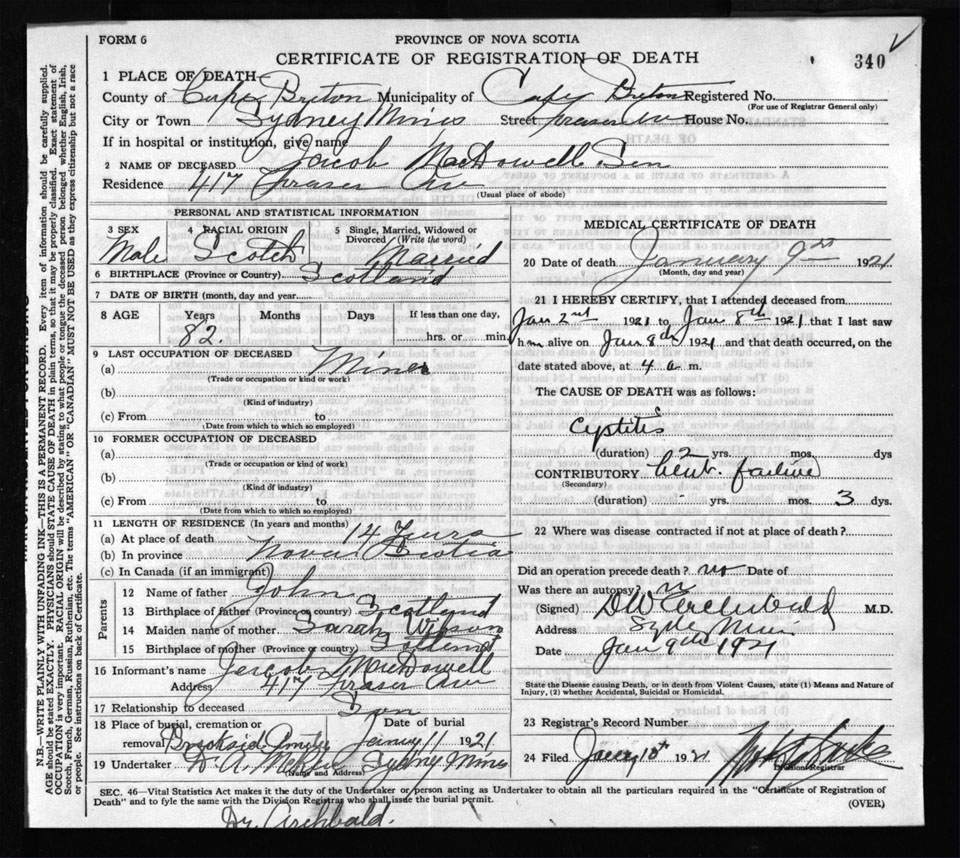 FORM 6
PROVINCE OF NOVA SCOTIA
CERTIFICATE OF REGISTRATION OF DEATH
340
1 PLACE OF DEATH
County of Cape Breton Municipality of Cape Breton Registered No.
(For use of Registrar General only)
City or Town Sydney Mines Street Fraser Ave House No.
If in hospital or institution, give name
2 NAME OF DECEASED Jacob MacDowell Sen
Residence 417 Fraser Ave
(Usual place of abode)
PERSONAL AND STATISTICAL INFORMATION
3 SEX 4 RACIAL ORIGIN 5 Single, Married, Widowed or
Divorced (Write the word)
Male Scotch Married
6 BIRTHPLACE (Province or Country) Scotland
7 DATE OF BIRTH (month, day and year
8 AGE Years Months Days If less than one day,
82. hrs. or min.
9 LAST OCCUPATION OF DECEASED
(a) Miner
(Trade or occupation or kind or work)
(b)
(Kind of industry)
(c) From to
(Date from which to which so employed)
10 FORMER OCCUPATION OF DECEASED
(a)
(Trade or occupation or kind of work)
(b)
(Kind of industry)
(c) From to
(Date from which to which so employed)
11 LENGTH OF RESIDENCE (In years and months)
(a) At place of death 14 Years
(b) In province Nova Scotia
(c) In Canada (if an immigrant)
Parents
12 Name of father John
13 Birthplace of father (Province or country) Scotland
14 Maiden name of mother Sarah Wilson
15 Birthplace of mother (Province or country) Scotland
16 Informant's name Jacob MacDowell
Address 417 Fraser Ave
17 Relationship to deceased Son
18 Place of burial, cremation or Date of burial
removal Brookside January 11 1921
19 Undertaker Sydney Mines
(Name and Address)
MEDICAL CERTIFICATE OF DEATH
20 Date of death January 9 1921
(Month, day and year)
21 I HEREBY CERTIFY, that I attended deceased from
Jan 2nd 1921 to Jan 8th 1921 that I last saw
him alive on Jan 8th 1921 and that death occurred, on the
date stated above, at 4 a m.
The CAUSE OF DEATH was as follows:
Cystitis
(duration) 2 yrs. mos. dys
CONTRIBUTORY failure
(Secondary)
(duration) - yrs. mos. 3 dys.
22 Where was disease contracted if not at place of death?
Did an operation precede death? no Date of
Was there an autopsy? n
(Signed) DW Archibald M.D.
Address Syde Mines
Date Jan 9th 1921
State the Disease causing Death, or in death from Violent Causes, state (1) Means and Nature of
Injury, (2) whether Accidental, Suicidal or Homicidal.
23 Registrar's Record Number
24 Filed Jany 10th 1921
Division Registrar
SEC. 46—Vital Statistics Act makes it the duty of the Undertaker or person acting as Undertaker to obtain all the particulars required in the "Certificate of Registration of
Death" and to fyle the same with the Division Registrar who shall issue the burial permit. (OVER)
Dr. Archbald.
N.B.—WRITE PLAINLY WITH UNFADING INK—THIS IS A PERMANENT RECORD. Every item of information should be carefully supplied.
AGE should be stated EXACTLY. PHYSICIANS should STATE CAUSE OF DEATH in plain terms, so that it may be properly classified. Exact statement of
OCCUPATION is very important. RACIAL ORIGIN will be described by stating to what people or tongue the deceased person belonged whether English, Irish,
Scotch, French, German, Russian, Ruthenian, etc. The terms "AMERICAN" OR "CANADIAN" MUST NOT BE USED as they express citizenship but not a race
or people. See instructions on back of Certificate.